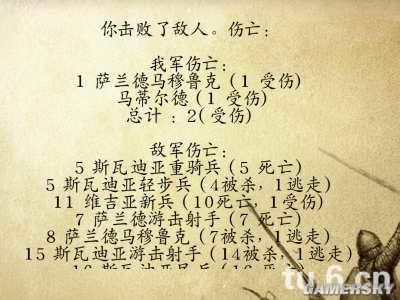 你击败了敌人。伤亡:
我军伤亡:
1 萨兰德马穆鲁克 (1 受伤)
马蒂尔德 (1 受伤)
总计 : 2(受伤)
敌军伤亡:
5 斯瓦迪亚重骑兵 (5 死亡)
5 斯瓦迪亚轻步兵 (4被杀,1逃走)
11 维吉亚新兵 (10死亡,1受伤)
7 萨兰德游击射手 (7 死亡)
8 萨兰德马穆鲁克 (7被杀,1逃走)
15 斯瓦迪亚游击射手 (14被杀,1逃走)
tu.6.cn
GAMERSKY